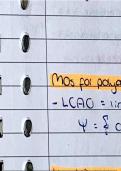 MOs for polya
- LCAO = lin
Ψ = Σ c